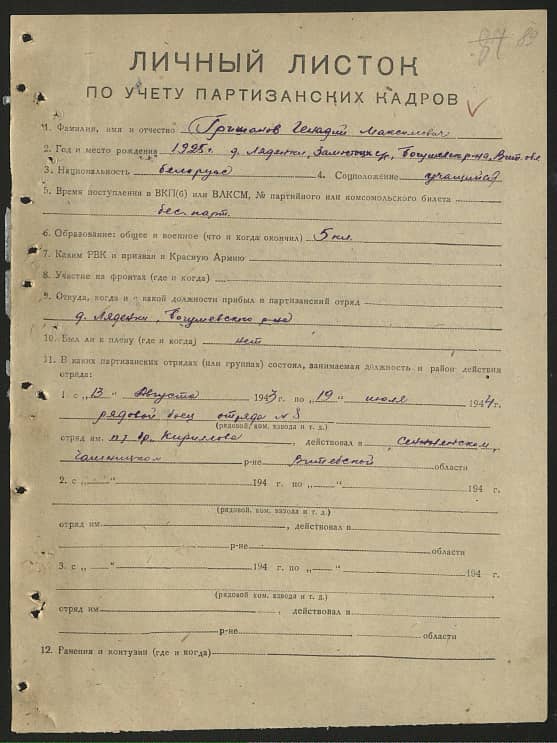 89
ЛИЧНЫЙ ЛИСТОК
ПО УЧЕТУ ПАРТИЗАНСКИХ КАДРОВ
1. Фамилия, имя и отчество Гришанов Генадий Максимович
2. Год и место рождения 1925г. д. Ляденки, Вит. обл.
3. Национальность белорус 4. Соцположение учащийся
5. Время поступления в ВКП(б) или ВЛКСМ, № партийного или комсомольского билета
бес. парт.
6. Образование: общее и военное (что и когда окончил) 5 кл.
7. Каким РВК и призван в Красную Армию
8. Участие на фронтах (где и когда)
9. Откуда, когда и с какой должности прибыл в партизанский отряд
д. Ляденки, Богушевского р-на
10. Был ли к плену (где и когда) нет
11. В каких партизанских отрядах (или группах) состоял, занимаемая должность и район действия
отряда:
1. с „13“ Августа 1943 г. по „19“ июля 1944 г.
рядовой боец отряда №8
(рядовой, ком. взвода и т. д.)
отряд им. п/бр. Кириллова, действовал в Сенненском,
Чашникском р-не Витебской области
2. с „ “ 194 г. по „ “ 194 г.
(рядовой, ком. взвода и т. д.)
отряд им. , действовал в
р-не области
3. с „ “ 194 г. по „ “ 194 г.
(рядовой, ком. взвода и т. д.)
отряд им. , действовал в
р-не области
12. Ранения и контузии (где и когда)